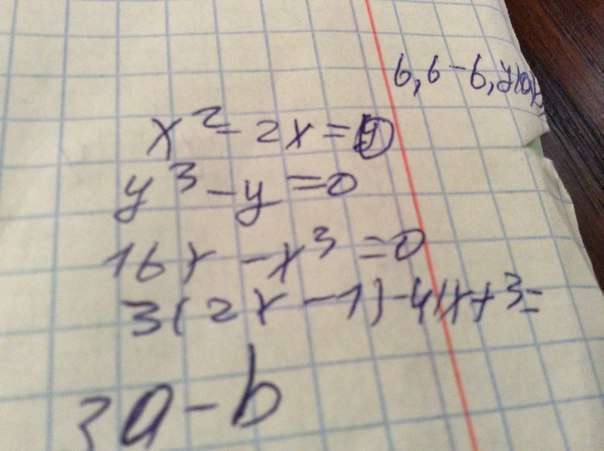 x² - 2x = 0
y³ - y = 0
16x - x³ = 0
3(2x - 1) - 4(x + 3 =
3a - b